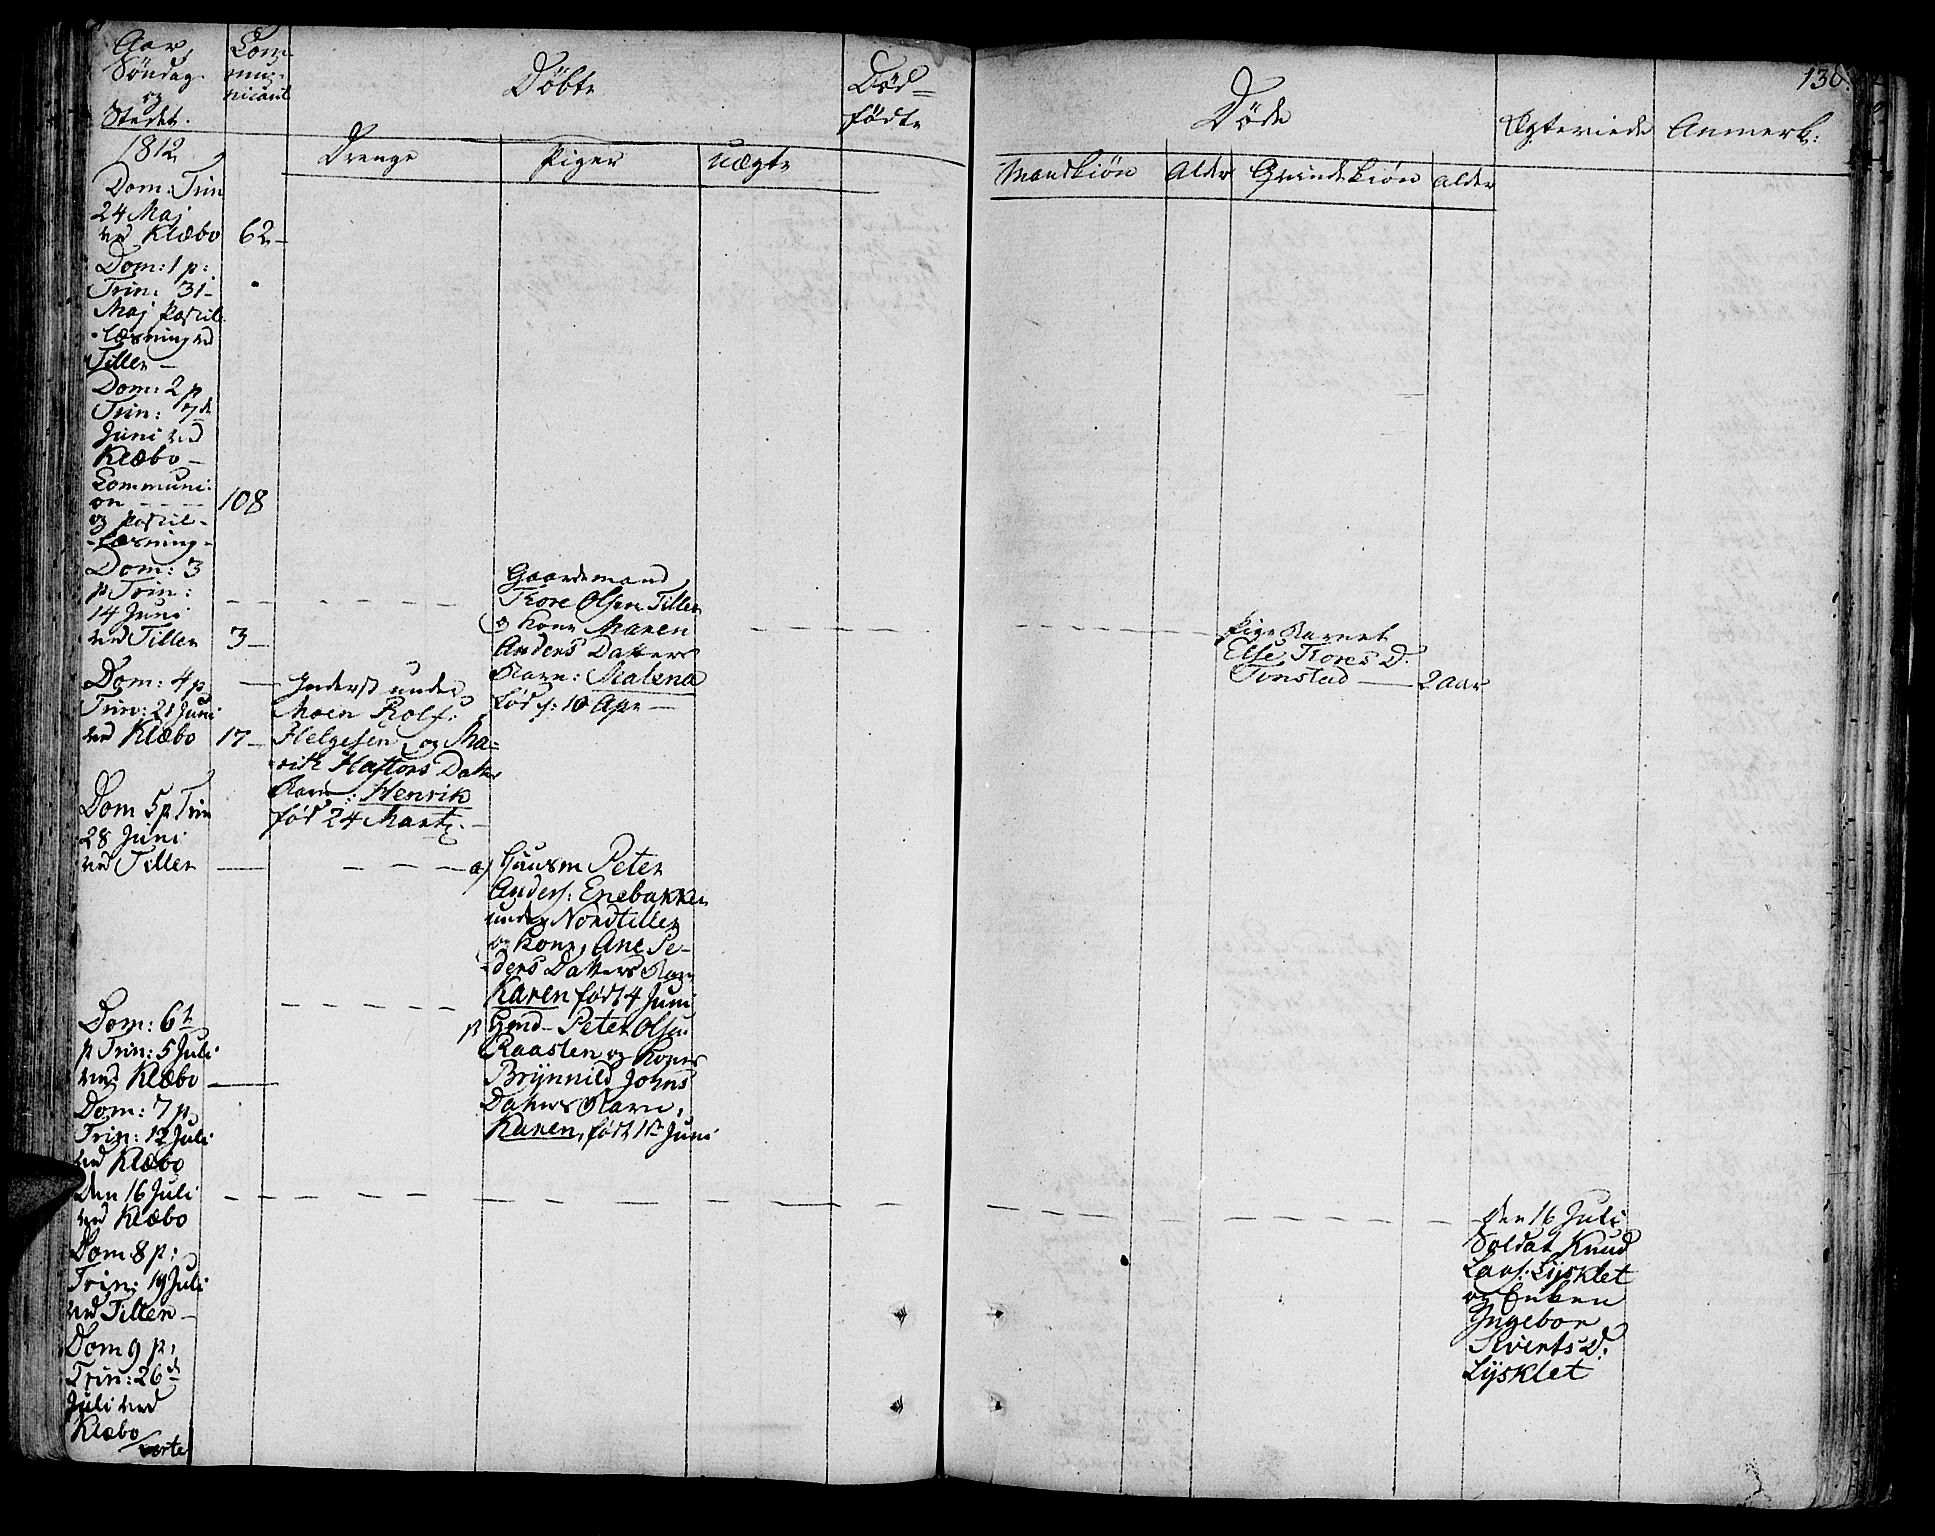 Aar,
Söndag
og
Stedet.
Com=
mu=
nicant
Döbte
Död=
födte
Döde
Ægteviede
Anmerk:
130.
1812
Drenge
Piger
Uægte
Mandkiön
Alder
Qvindekiön
Alder
Dom: Trin
24 Maj
ved Klæbo 62 –
Dom: 1 p:
Trin: 31 –
Maj Postil
læsning ved
Tiller –
Dom: 2 p
Trin: 7de
Juni ved
Klæbo –
Communi:
on - - - 108
og Postil-
-læsning -
Dom: 3
p Trin:
14 Juni
ved Tiller 3 –
Gaardmand
Thore Olsen Tiller
og Kone Maren
Anders Datters
Barn: Malena
född: 10 Apr –
Pige Barnet
Else Thores D.
Tonstad – 2 aar
Dom: 4 p
Trin: 21 Juni
ved Klæbo 17 –
Inderst under
Moen Rolf:
Helgesen, og Ma=
rith Haftors Datter
Barn: Henrik
föd 24 Martz. –
Dom 5 p Trin
28 Juni
ved Tiller
a) Huusm Peter
Anders: Enebakken
under Nordtiller
og Kone, Ane Pe-
ders Datters Barn
Karen födt 4 Juni
ß Gmd – Peter Olsen
Raaslen og Kones
Brynnild Johns
Datters Barn,
Karen, födt 1ste Juni
Dom: 6te
p Trin: 5 Juli
ved Klæbo –
Dom: 7 p
Trin: 12 Juli
ved Klæbo
Den 16 Juli
ved Klæbo
den 16 Juli
Soldat Knud
Lars: Lysklet
og Enken
Ingebor
Siverts D:
Lysklet
Dom 8 p:
Trin: 19 Juli
ved Tiller –
Dom 9 p:
Trin: 26de
Juli ved
Klæbo
verte